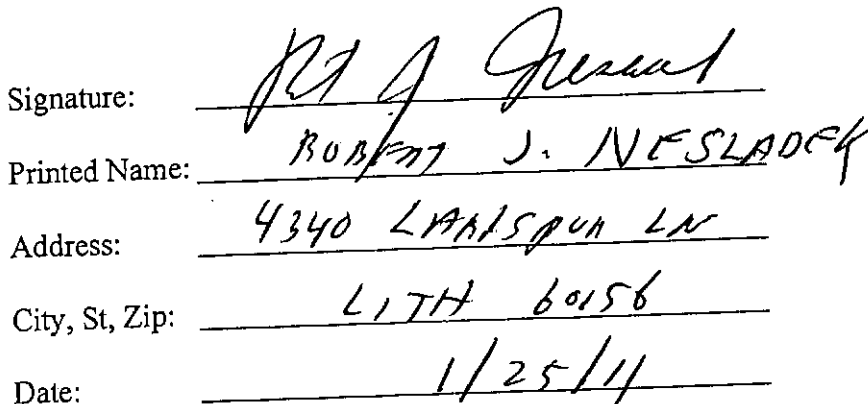 Signature:
Printed Name: ROBERT J. NESLADEK
Address: 4340 LARKSPUR LN
City, St, Zip: LITH 60156
Date: 1/25/11